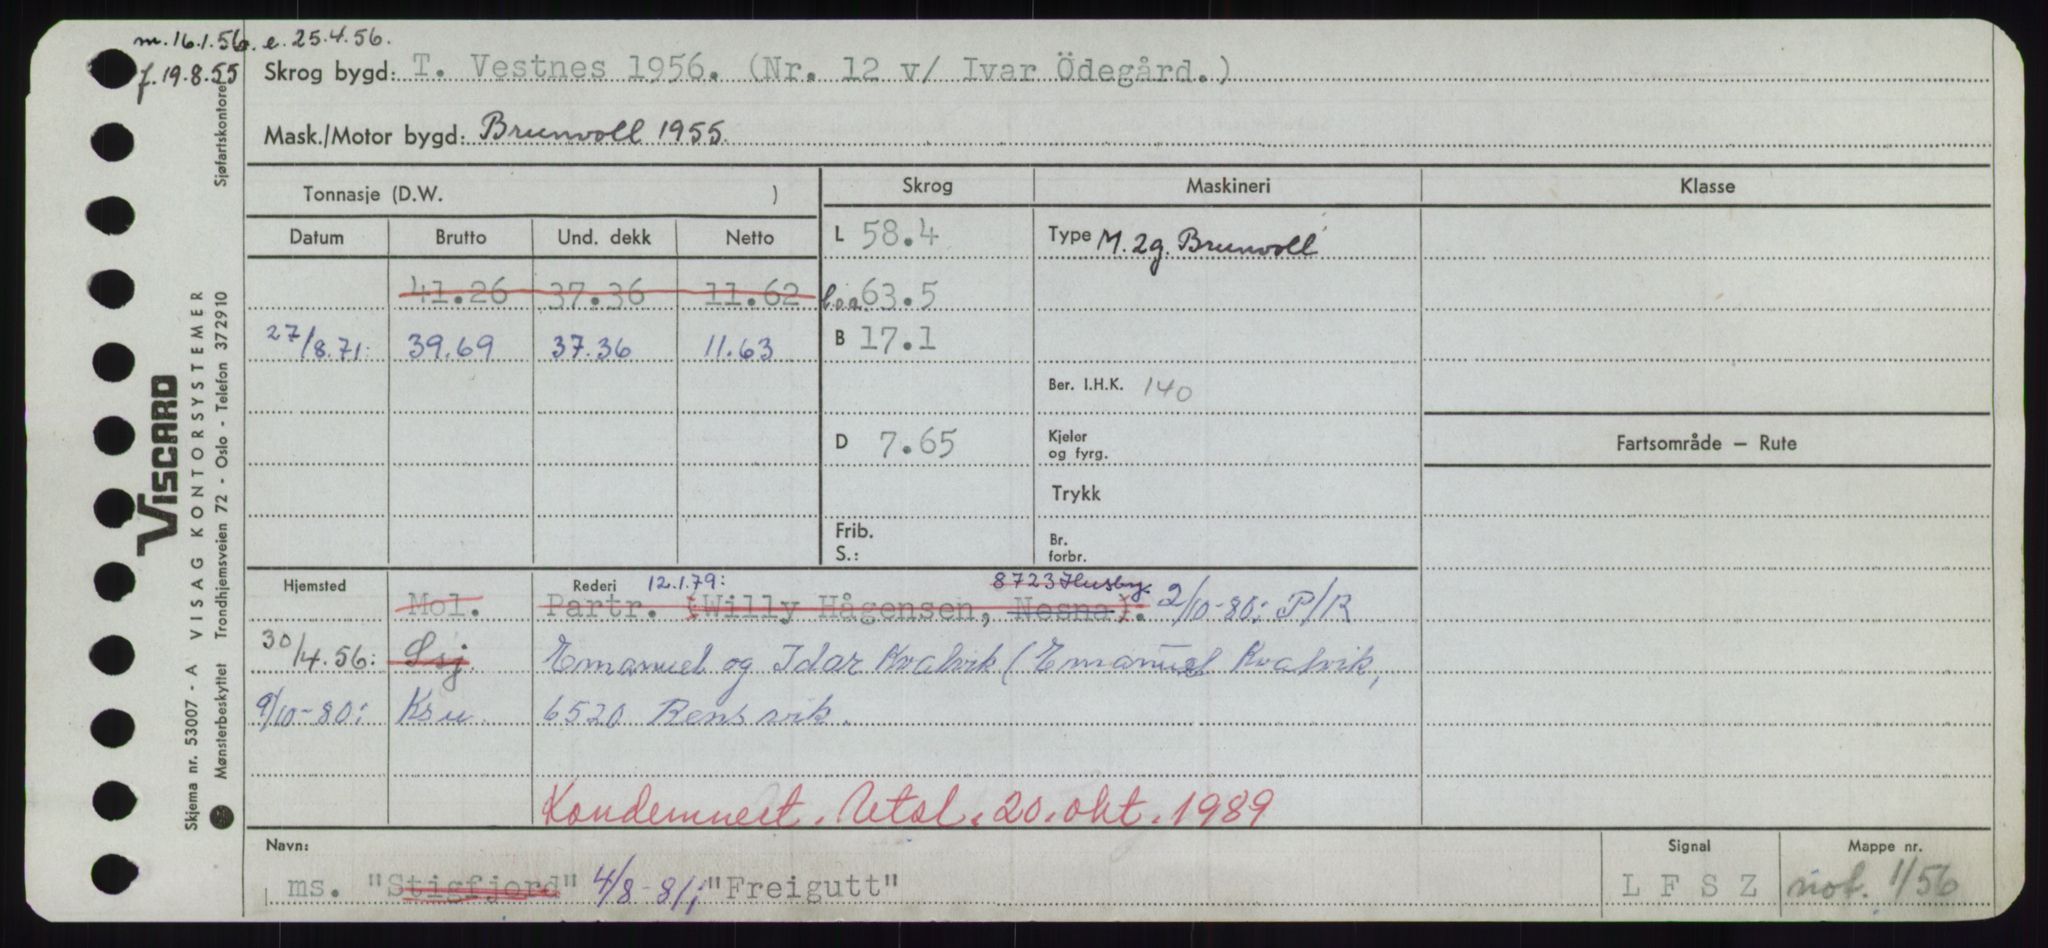 m. 16.1.56. e. 25.4.56.
f. 19.8.55
Skrog bygd: T. Vestnes 1956. (Nr. 12 v/ Ivar Ödegård.)
Mask./Motor bygd: Brunvoll 1955.
Tonnasje (D.W. )
Skrog Maskineri Klasse
Datum Brutto Und. dekk Netto
L 58.4 Type M. 2g. Brunvoll
41.26 37.36 11.62 l.o.a 63.5
27/8.71: 39.69 37.36 11.63 B 17.1
Ber. I.H.K. 140
D 7.65 Kjeler og fyrg.
Fartsområde — Rute
Trykk
Frib. S.: Br. forbr.
Hjemsted Rederi 12.1.79: 8723 Husby
Mol. Partr. (Willy Hågensen, Nesna). 2/10-80: P/R
30/4.56: Ssj. Emanuel og Idar Kvalvik (Emanuel Kvalvik,
9/10-80: Ksu. 6520 Rensvik.
Kondemnert. Utsl. 20. okt. 1989
Navn: Signal Mappe nr.
ms. "Stigfjord" 4/8-81; "Freigutt" L F S Z not. 1/56
VISCARD
VISAG KONTORSYSTEMER
Sjøfartskontoret
Skjema nr. 53007 - A
Mønsterbeskyttet Trondhjemsveien 72 - Oslo - Telefon 372910